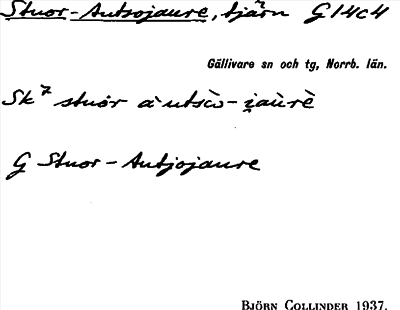 Stuor-Autsojaure, tjärn G14c4
Gällivare sn och tg, Norrb. län.
Sk⁷ stuȯr àutsȯ̀-i̯au̇rè
G Stuor-Autjojaure
BJÖRN COLLINDER 1937.